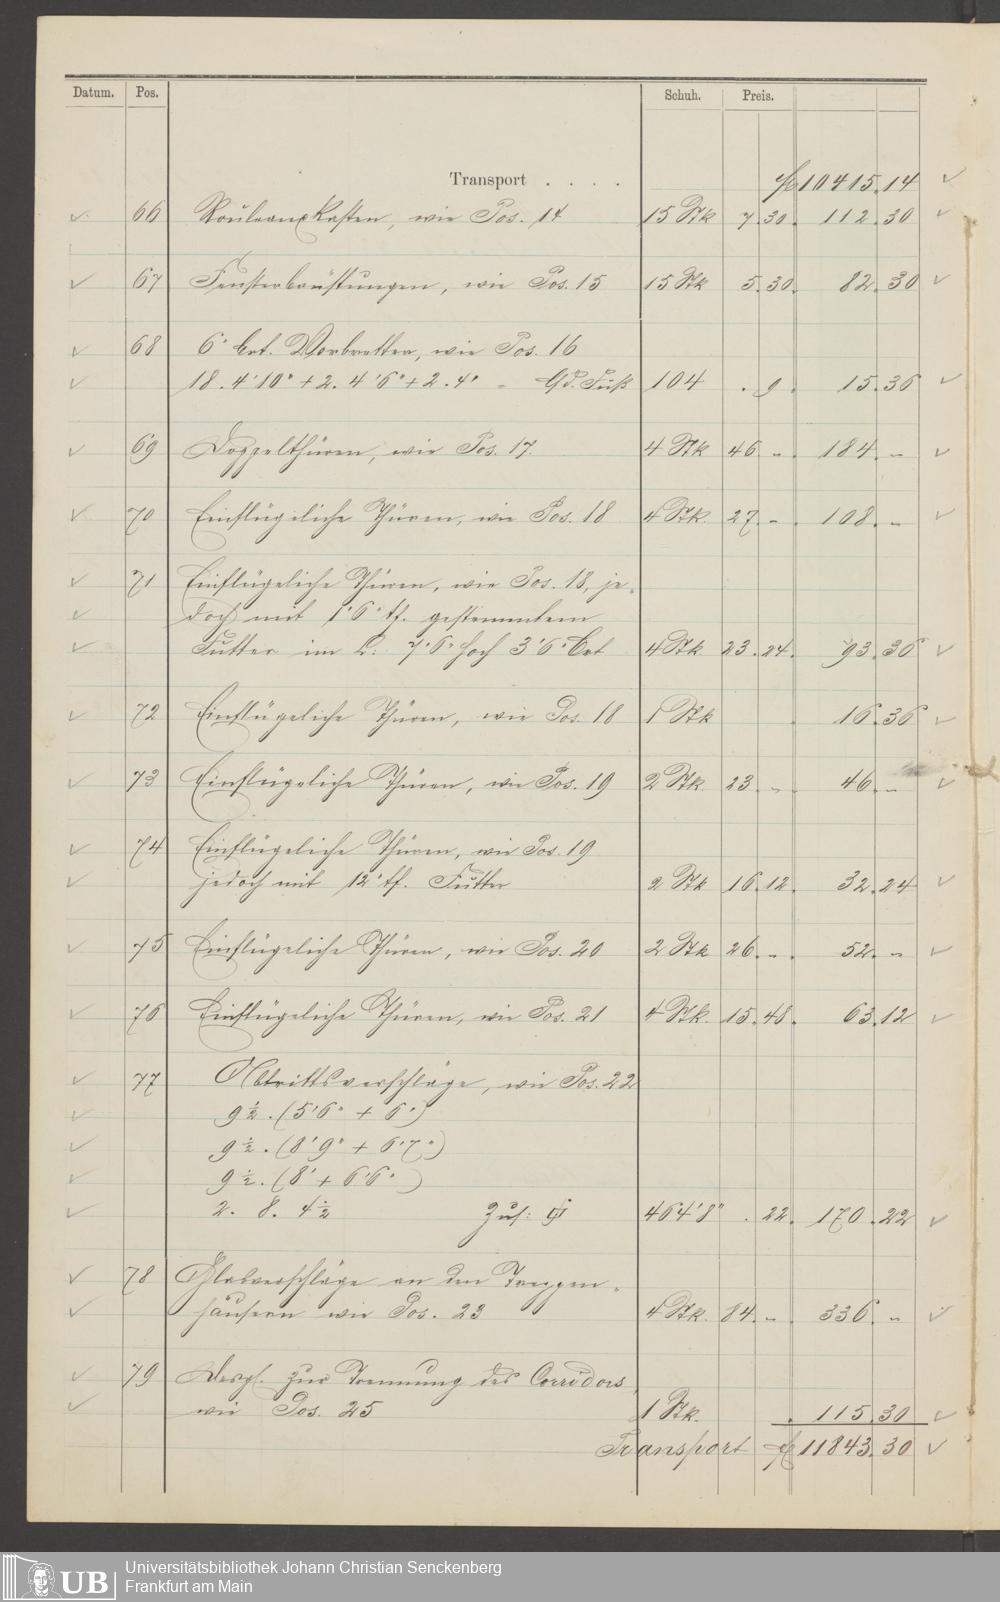 Datum. Pos. Schuh. Preis.
Transport . . . . fl 10415. 14
66 Rouleauxkasten, wie Pos. 14 15 Stk 7. 30. 112. 30
67 Fensterbrüstungen, wie Pos. 15 15 Stk 5. 30. 82. 30
68 6" brt. Vorbretter, wie Pos. 16
18. 4'10" + 2. 4'6" + 2. 4" = Fuß 104 . 9. 15. 36
69 Doppelthüren, wie Pos. 17. 4 Stk 46. „ . 184. „
70 Einflügeliche Thüren, wie Pos. 18 4 Stk. 27. „ . 108. „
71 Einflügeliche Thüren, wie Pos. 18, je-
doch mit 1'6" tf. gestemmtem
Futter im L: 7'6" hoch 3'6" brt 4 Stk 23. 24. 93. 36
72 Einflügeliche Thüren, wie Pos. 18 1 Stk . 16. 36
73 Einflügeliche Thüren, wie Pos. 19 2 Stk. 23. „ . 46. „
74 Einflügeliche Thüren, wie Pos. 19
jedoch mit 12" tf. Futter 2 Stk 16. 12. 32. 24
75 Einflügeliche Thüren, wie Pos. 20 2 Stk 26. „ . 52. „
76 Einflügeliche Thüren, wie Pos. 21 4 Stk. 15. 48. 63. 12
77 Abtrittsverschläge, wie Pos. 22
9 1/2 . (5'6" + 6")
9 1/2 . (8'9" + 6'7")
9 1/2 . (8' + 6'6")
2. 8. 4 1/2 Zus: 464'8" . 22. 170. 22
78 Glasverschläge an den Treppen-
häusern wie Pos. 23 4 Stk. 84. „ . 336. „
79 Desgl. zur Trennung des Corridors,
wie Pos. 25 1 Stk. . 115. 30
Transport fl 11843. 30
UB
Universitätsbibliothek Johann Christian Senckenberg
Frankfurt am Main